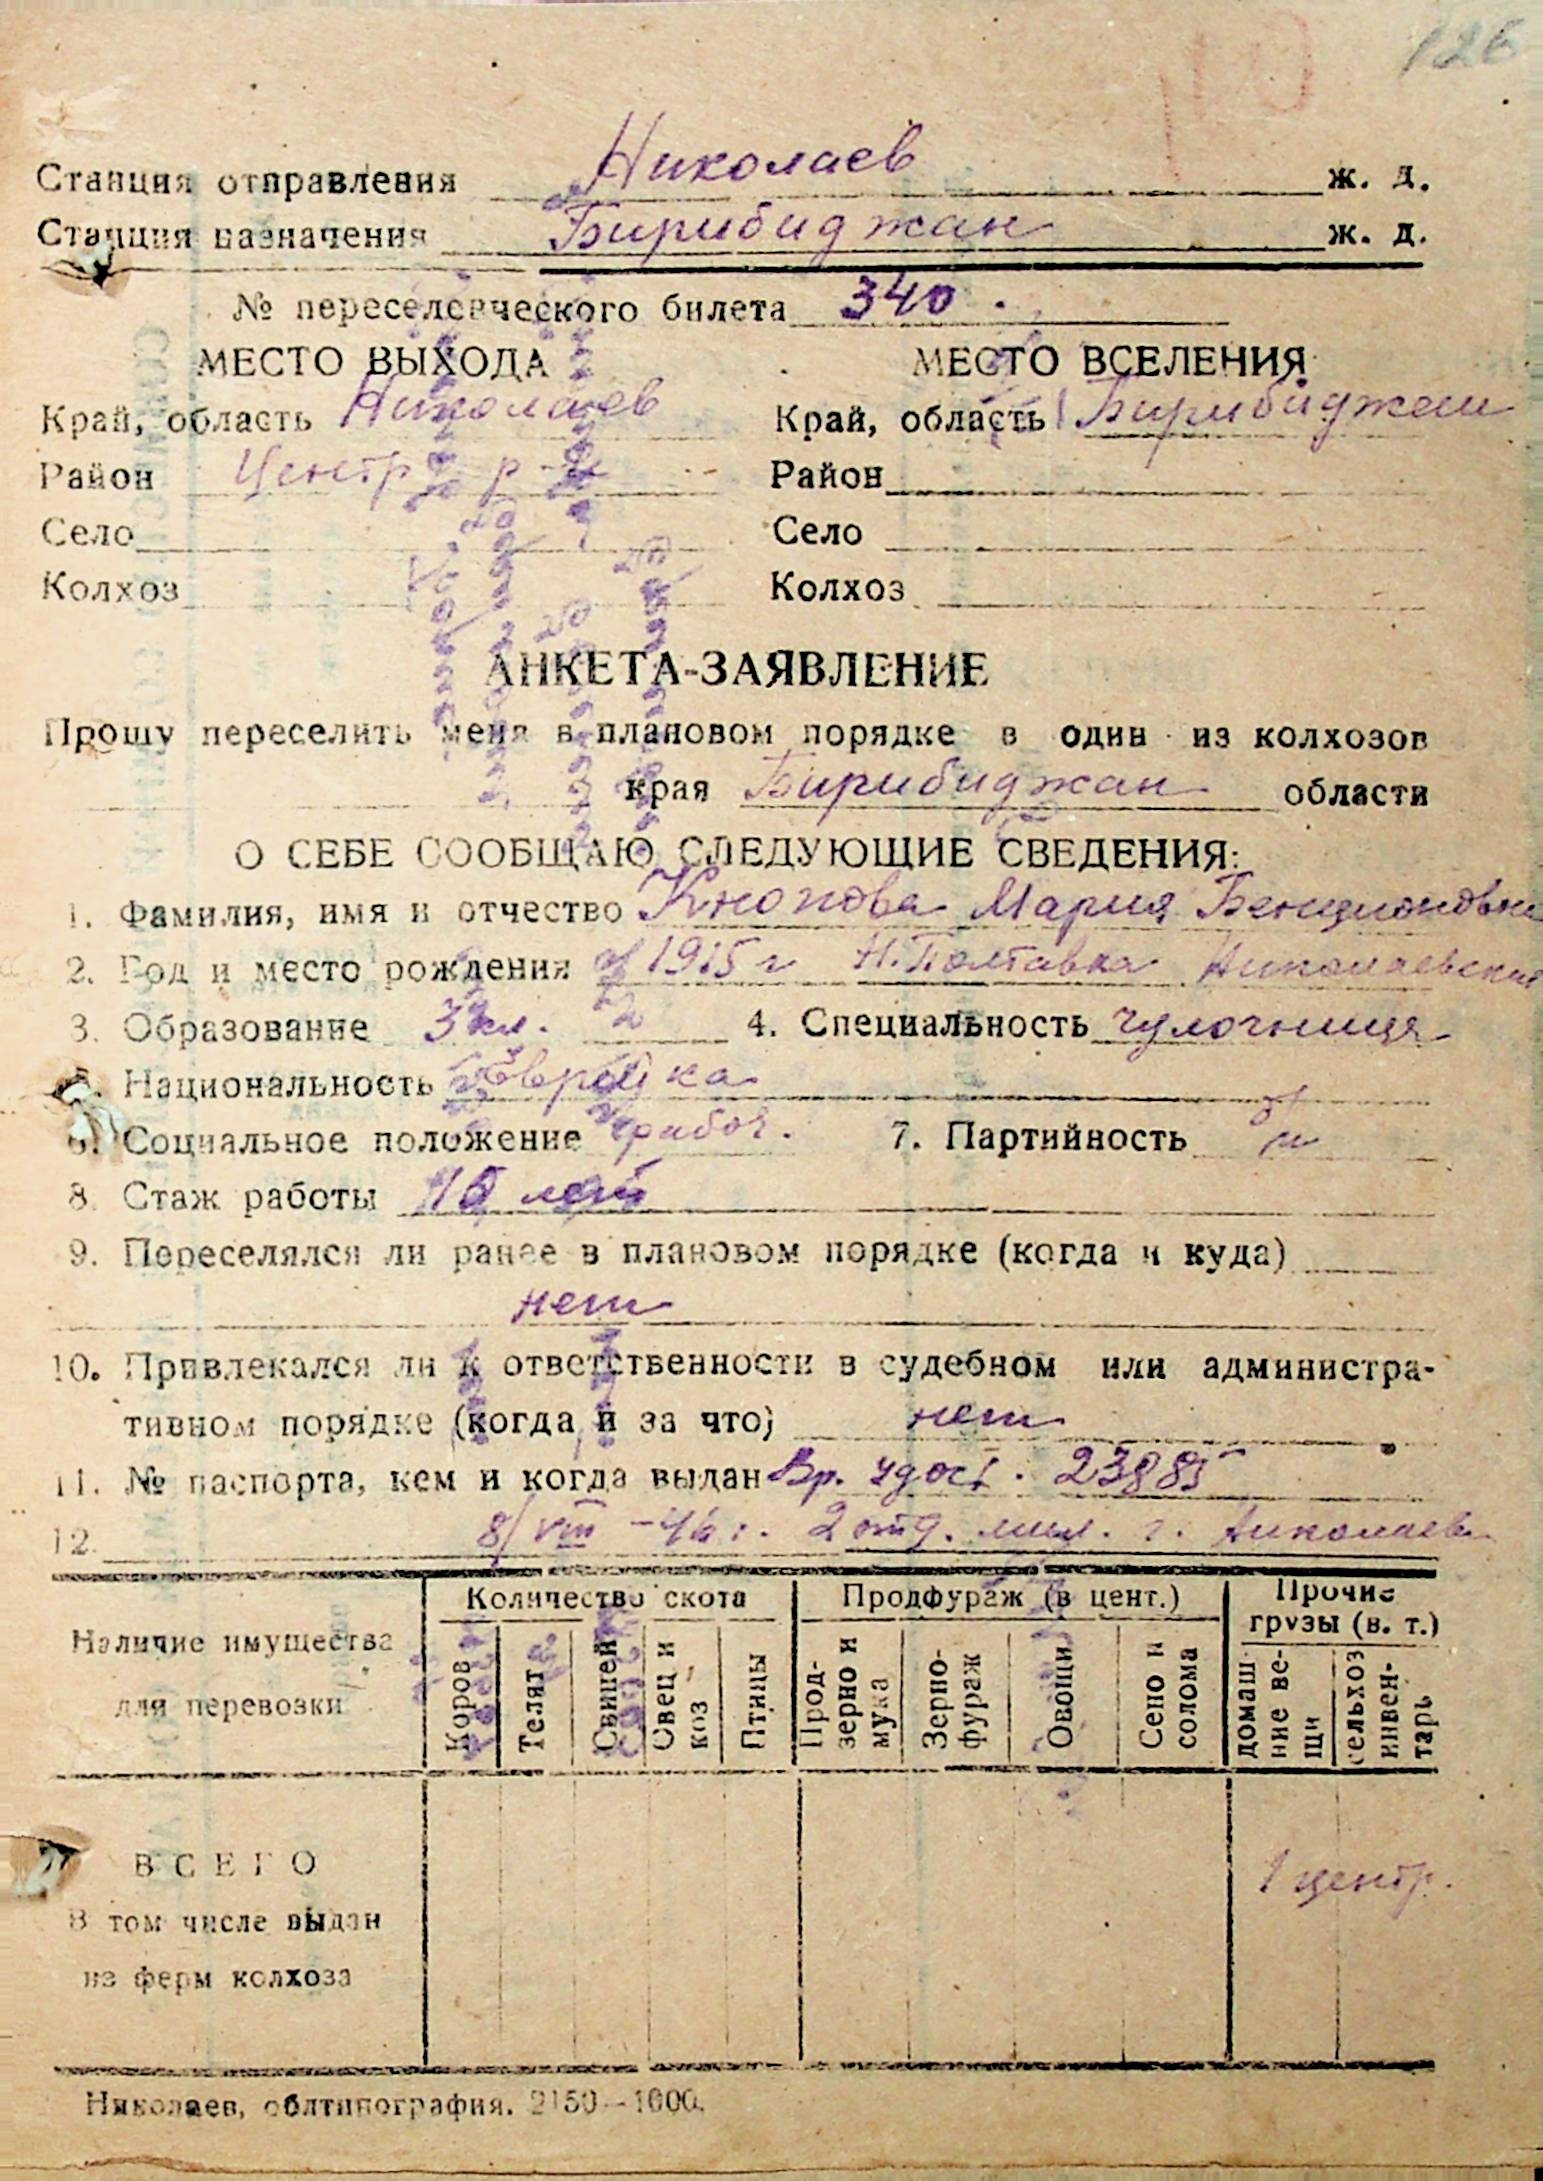 126
Станция отправления Николаев ж. д.
Станция назначения Бирибиджан ж. д.
№ переселенческого билета 340.
МЕСТО ВЫХОДА МЕСТО ВСЕЛЕНИЯ
Край, область Николаев Край, область Бирибиджан
Район Центр. р-н Район
Село Село
Колхоз Колхоз
АНКЕТА-ЗАЯВЛЕНИЕ
Прошу переселить меня в плановом порядке в один из колхозов
края Бирибиджан области
О СЕБЕ СООБЩАЮ СЛЕДУЮЩИЕ СВЕДЕНИЯ:
1. Фамилия, имя и отчество Кнопова Мария Бенционовна
2. Год и место рождения 1915 г Н. Полтавка Николаевский
3. Образование 3 кл. 4. Специальность чулочница
5. Национальность Еврейка
6. Социальное положение рабоч. 7. Партийность б/п
8. Стаж работы 15 лет
9. Переселялся ли ранее в плановом порядке (когда и куда)
нет
10. Привлекался ли к ответственности в судебном или администра-
тивном порядке (когда и за что) нет
11. № паспорта, кем и когда выдан Вр. удост. 23885
12. 8/VIII-46 г. 2 отд. мил. г. Николаев
Наличие имущества для перевозки
Количество скота Продфураж (в цент.) Прочие грузы (в. т.)
Коров Телят Свиней Овец и коз Птицы Прод-зерно и мука Зерно-фураж Овощи Сено и солома домаш-ние ве-щи сельхоз инвен-тарь
ВСЕГО 1 центр.
В том числе выдан
из ферм колхоза
Николаев, облтипография. 2150—1000.